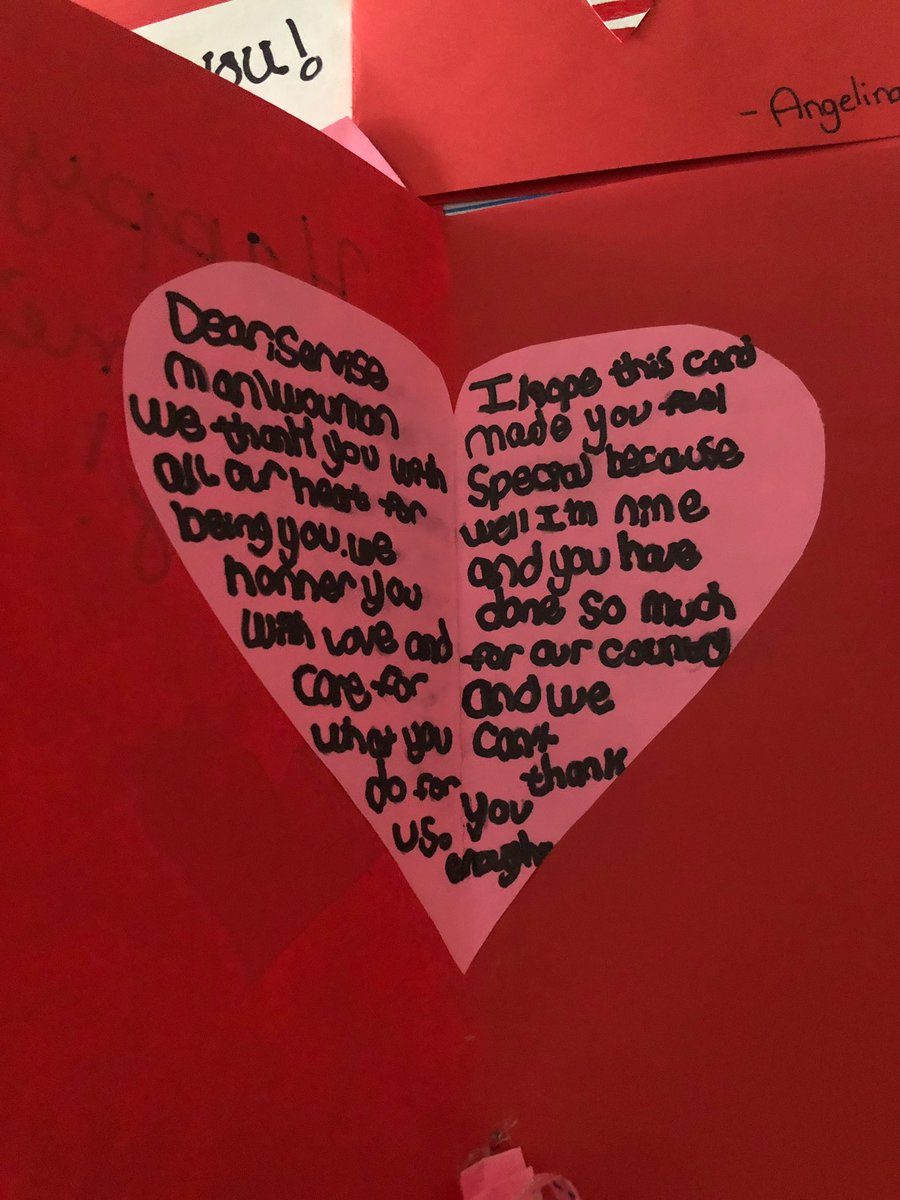 you!
- Angelina
Happy
Dear, Servise
man\wouman
We thank you with
all our heart for
being you. we
honner you
with love and
care for
what you
do for
us.
I hope this card
made you feel
special because
well I'm nine
and you have
done so much
for our country
and we
can't
thank
you
enough